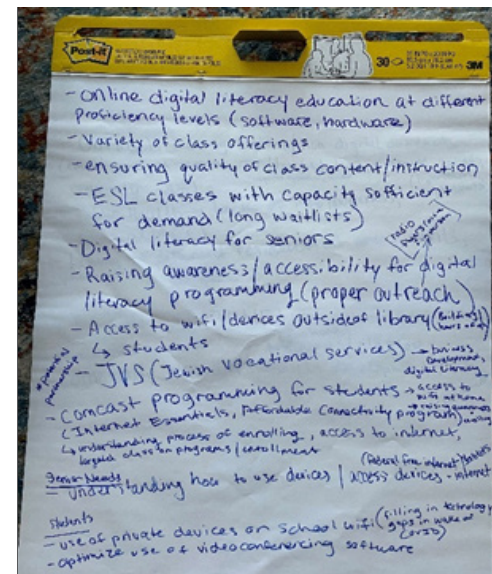 Post-it
30
3M
- Online digital literacy education at different
proficiency levels (software, hardware)
- Variety of class offerings
- ensuring quality of class content/instruction
- ESL classes with capacity sufficient
for demand (long waitlists)
radio
- Digital literacy for seniors
- Raising awareness/accessibility for digital
literacy programming (proper outreach)
- Access to wifi/devices outside of library (building/
↳ students
*potential
partnership
- JVS (Jewish Vocational Services) → business
development,
digital literacy
- Comcast programming for students → access to
wifi at home
(Internet Essentials, Affordable Connectivity program) → raising awareness
↳ understanding process of enrolling, access to internet,
class on programs/enrollment
Senior Needs
(Federal free internet)
- Understanding how to use devices / access devices + internet
Students
- use of private devices on school wifi (filling in technology
gaps in wake of
- optimize use of videoconferencing software